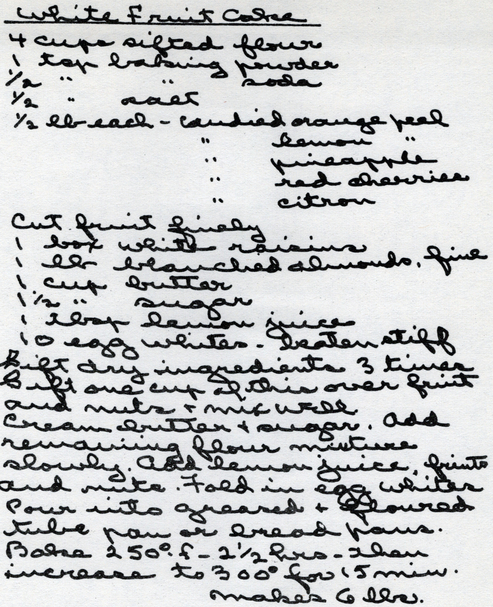 White Fruit Cake
4 cups sifted flour
1 tsp baking powder
1/2 " " soda
1/2 " salt
1/2 lb each - candied orange peel
" lemon "
" pineapple
" red cherries
" citron
Cut fruit finely
1 box white raisins
1 lb blanched almonds, fine
1 cup butter
1 1/2 " sugar
1 tbsp lemon juice
10 egg whites - beaten stiff
Sift dry ingredients 3 times
Sift one cup of this over fruit
and nuts + mix well
Cream butter + sugar. Add
remaining flour mixture
slowly. Add lemon juice, fruits
and nuts. Fold in egg whites
Pour into greased + floured
tube pan or bread pans.
Bake 250° f - 2 1/2 hrs - then
increase to 300° for 15 min.
makes 6 lbs.